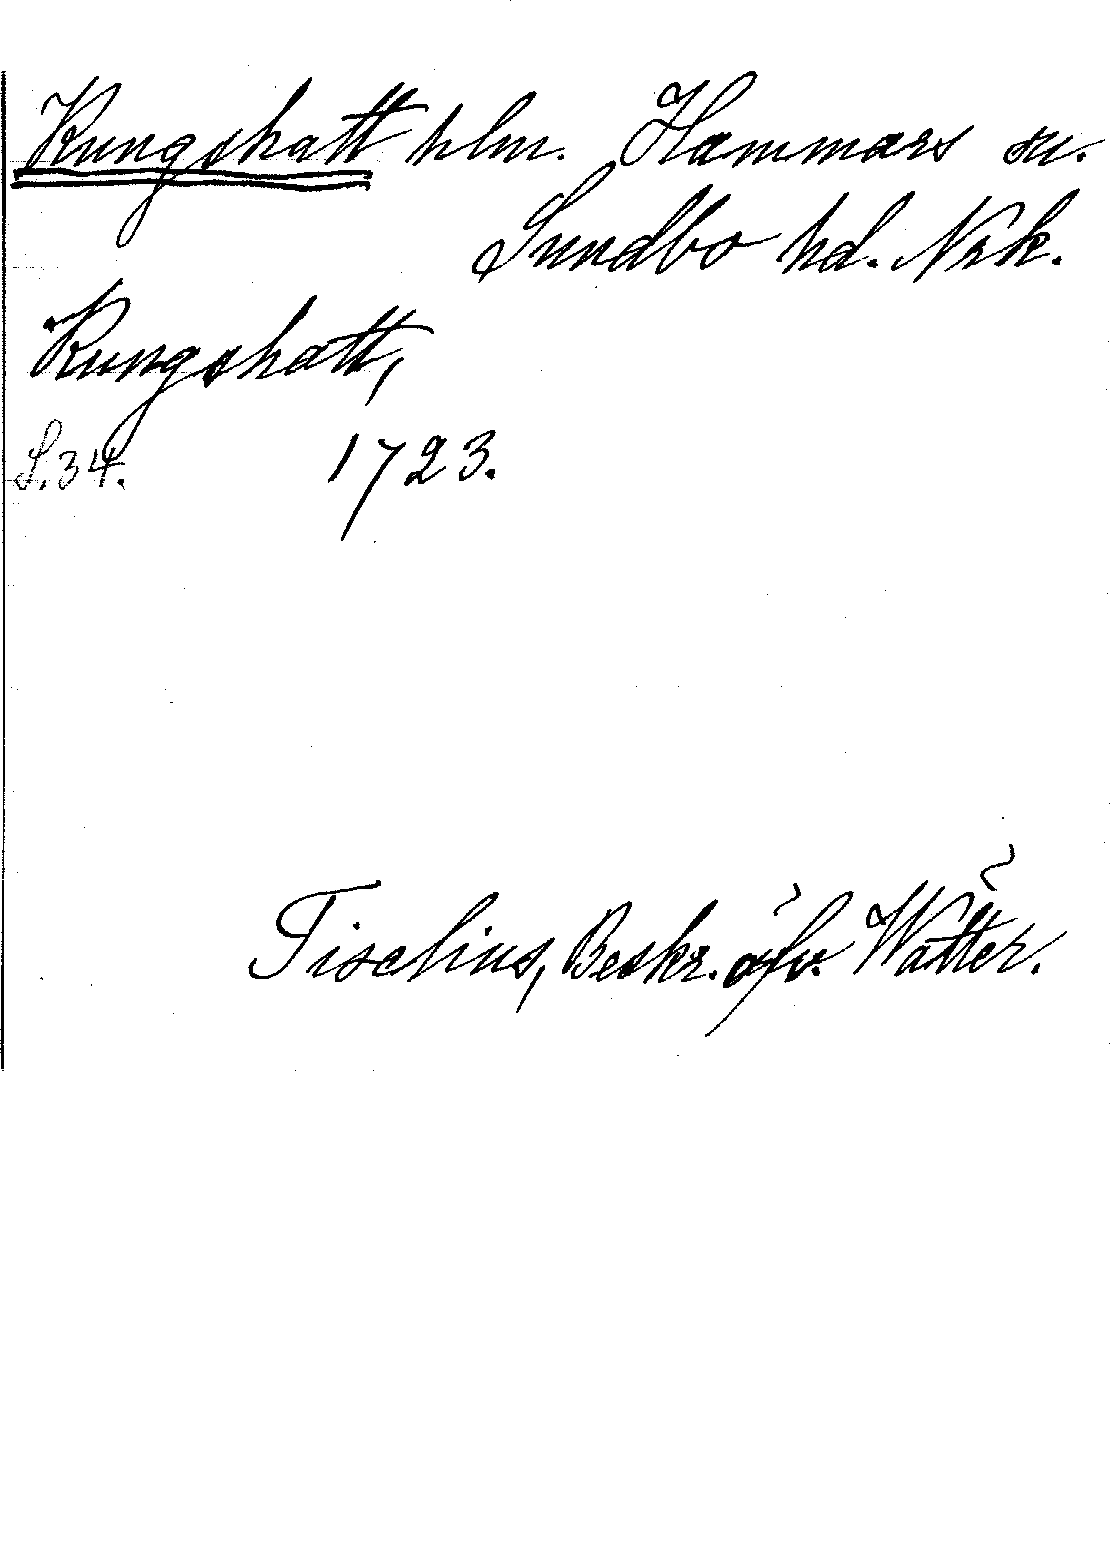 Kungshatt hlm. Hammars sn.
Sundbo hd. Nrk.
Kungshatt,
S.34. 1723.
Tiselius, Beskr. öfv. Wätter.